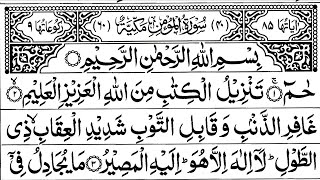 اٰيَاتُهَا ٨٥ (٤٠) سُوْرَةُ الْمُؤْمِنِ مَكِّيَّةٌ (٦٠) رُكُوْعَاتُهَا ٩
بِسْمِ اللّٰهِ الرَّحْمٰنِ الرَّحِيْمِ
حٰمٓ ۚ تَنْزِيْلُ الْكِتٰبِ مِنَ اللّٰهِ الْعَزِيْزِ الْعَلِيْمِ ۙ ٢
غَافِرِ الذَّنْۢبِ وَ قَابِلِ التَّوْبِ شَدِيْدِ الْعِقَابِ ۙ ذِى
الطَّوْلِ ؕ لَاۤ اِلٰهَ اِلَّا هُوَ ؕ اِلَيْهِ الْمَصِيْرُ ٣ مَا يُجَادِلُ فِىْۤ